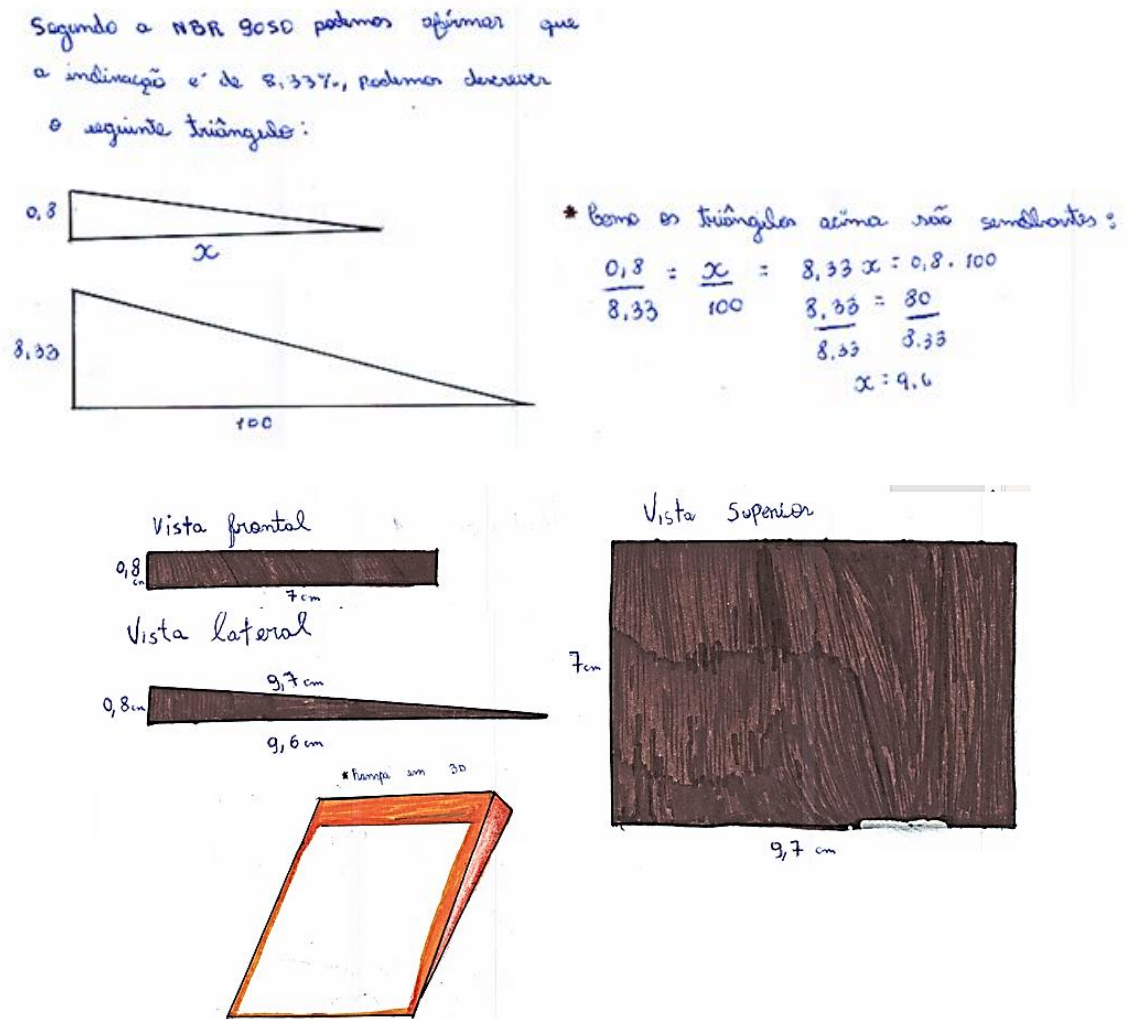 Segundo a NBR 9050 podemos afirmar que
a inclinação é de 8,33%, podemos descrever
o seguinte triângulo:
0,8
x
8,33
100
* Como os triângulos acima são semelhantes:
0,8 = x = 8,33 x = 0,8 . 100
8,33 100 8,33 = 80
8,33 8.33
x = 9,6
Vista frontal
0,8 cm
7 cm
Vista lateral
9,7 cm
0,8 cm
9,6 cm
* Rampa em 3D
Vista Superior
7 cm
9,7 cm